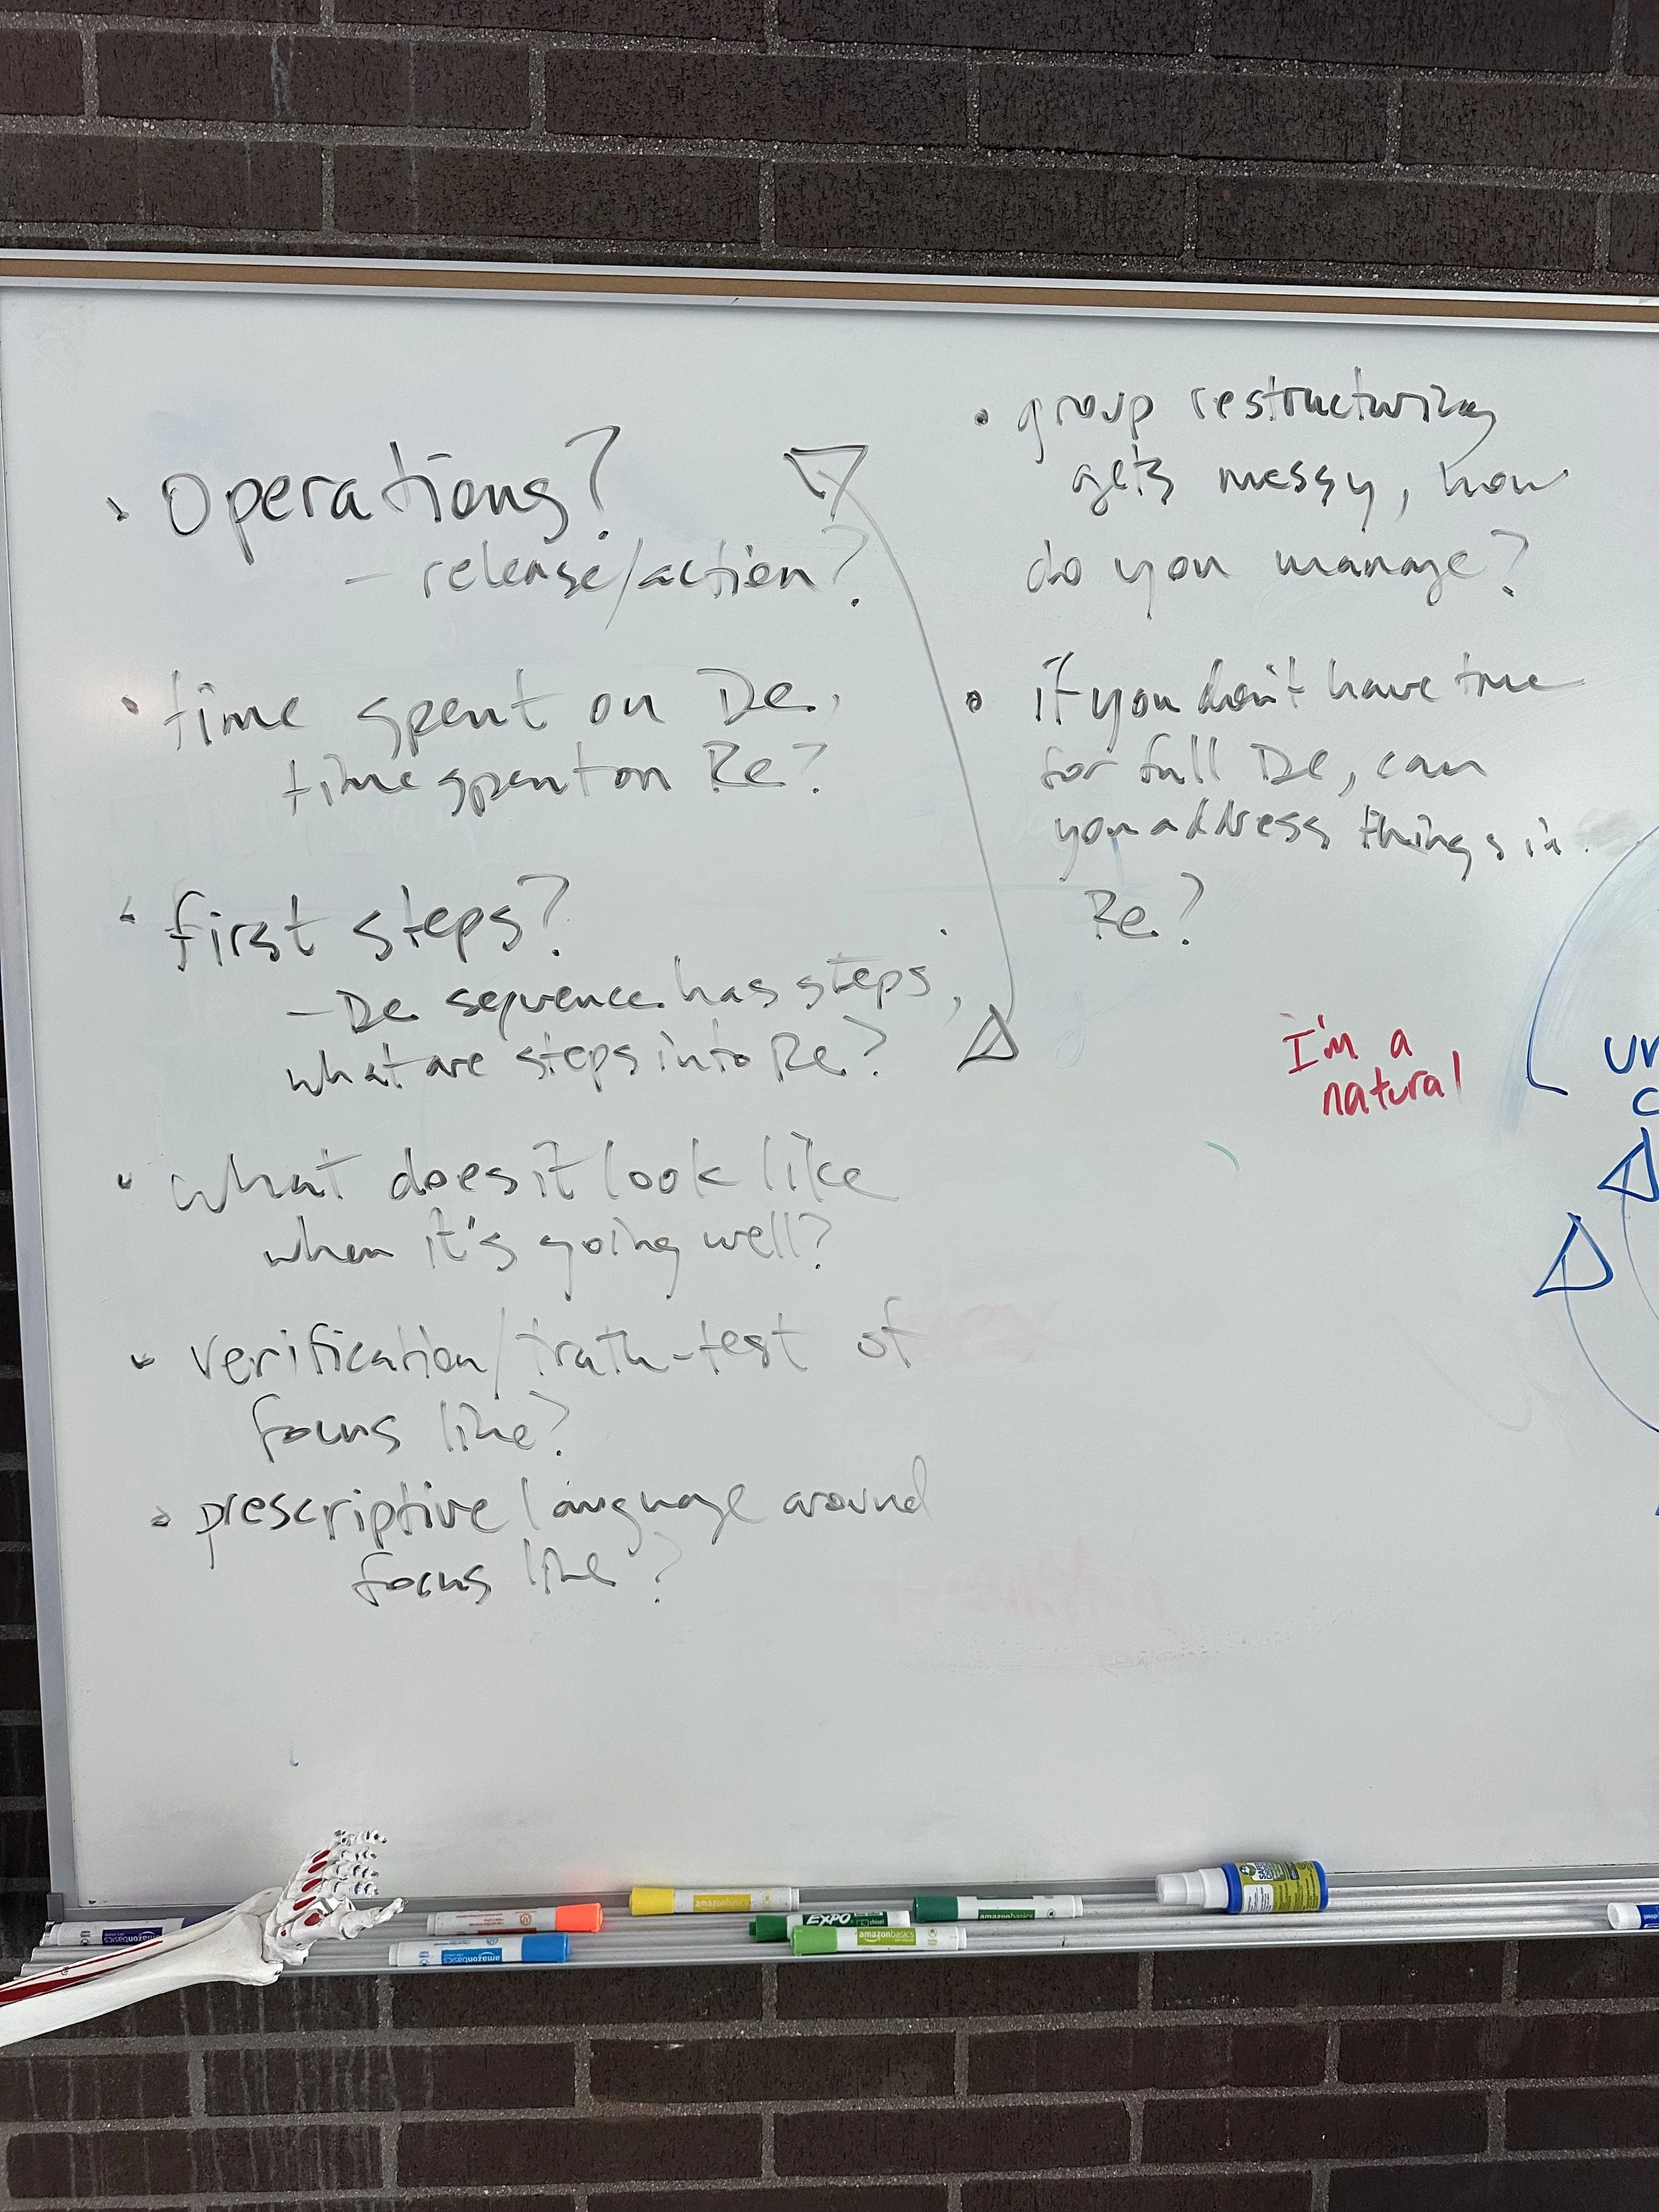 • Operations?
– release/action?
• time spent on De,
time spent on Re?
• first steps?
– De sequence has steps,
what are steps into Re?
• what does it look like
when it's going well?
• verification/truth-test of
focus line?
• prescriptive language around
focus line?
• group restructuring
gets messy, how
do you manage?
• if you don't have time
for full De, can
you address things in
Re?
I'm a
natural
amazonbasics
amazonbasics
amazonbasics
EXPO
chisel
amazonbasics
amazonbasics